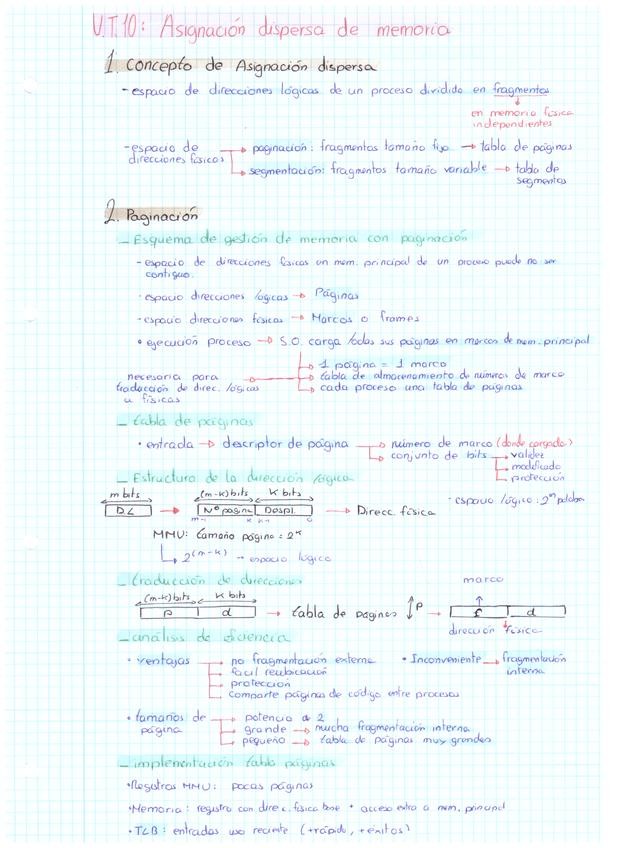 V.T.10: Asignación dispersa de memoria
1. Concepto de Asignación dispersa
- espacio de direcciones lógicas de un proceso dividido en fragmentos
en memoria física
independientes
- espacio de direcciones físicos
paginación: fragmentos tamaño fijo → tabla de páginas
segmentación: fragmentos tamaño variable → tabla de segmentos
2. Paginación
- Esquema de gestión de memoria con paginación
- espacio de direcciones físicas en mem. principal de un proceso puede no ser
contiguo.
· espacio direcciones lógicas → Páginas
- espacio direcciones físicas → Marcos o frames
• ejecución proceso → S.O. carga todas sus páginas en marcos de mem. principal
1 página = 1 marco
necesaria para traducción de direc. lógicas a físicas
tabla de almacenamiento de números de marco
cada proceso una tabla de páginas
- tabla de páginas
• entrada → descriptor de página → número de marco (donde cargada)
conjunto de bits → validez
modificado
protección
- Estructura de la dirección lógica
m bits (m-k) bits k bits
D.L → Nº pagina Despl. → Direcc. física
m-1 k k-1 0
- espacio lógico: 2^m palabra
MMU: tamaño página = 2^k
2^(m-k) → espacio lógico
- traducción de direcciones
marco
(m-k) bits k bits
p d → tabla de paginas p → f d
dirección física
- análisis de eficiencia
• ventajas → no fragmentación externa
facil reubicación
protección
comparte páginas de código entre procesos
• Inconveniente → fragmentación interna
• tamaños de página → potencia de 2
grande → mucha fragmentación interna
pequeño → tabla de páginas muy grandes
- implementación tabla páginas
•Registros MMU: pocas páginas
•Memoria: registro con direc. física base + acceso extra a mem. principal
• TLB: entradas uso reciente (+rápido, +éxitos)